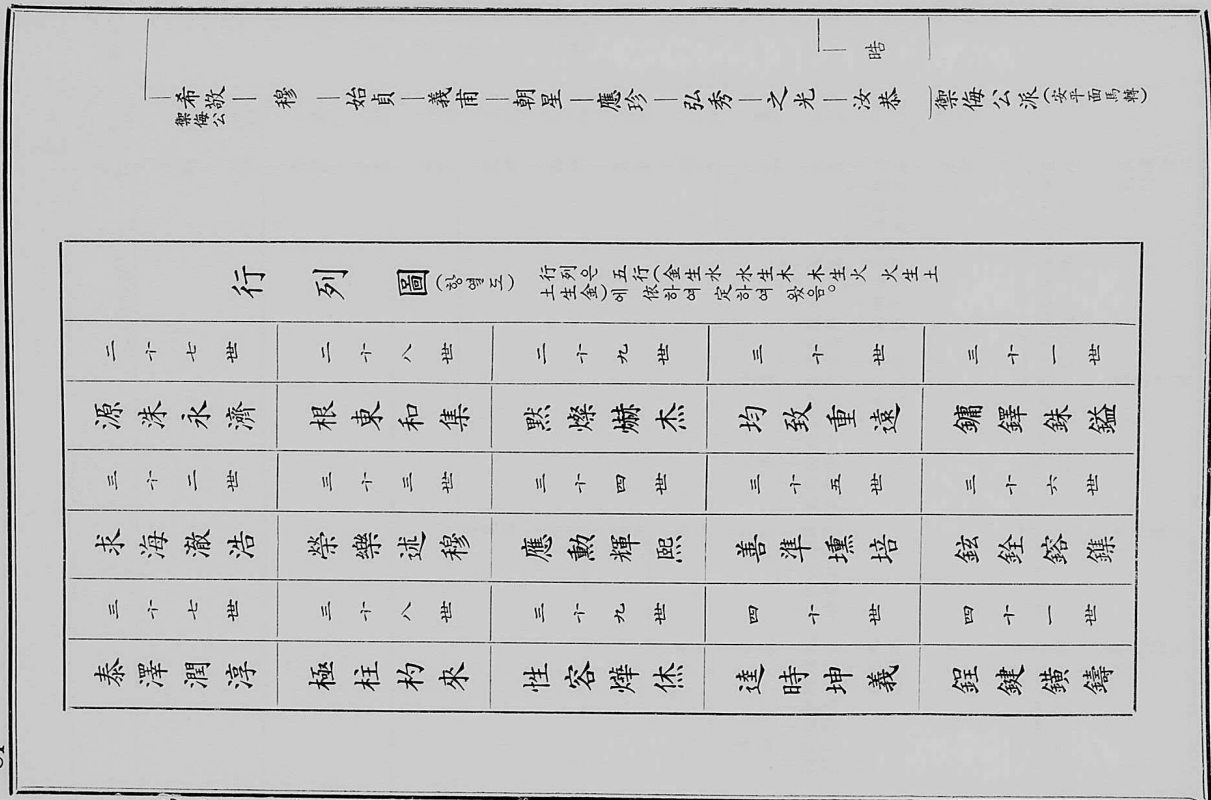 晧
希敬 穆 始貞 義甫 朝星 應珍 弘秀 之光 汝恭 禦侮公派(安平面馬轉)
禦侮公
行列圖(항열도)
行列은 五行(金生水 水生木 木生火 火生土
土生金)에 依하여 定하여 왔음。
二十七世 二十八世 二十九世 三十世 三十一世
源洙永濟 根東和集 默燦爀杰 均致重遠 鏞鐸銖鎰
三十二世 三十三世 三十四世 三十五世 三十六世
求海澈浩 榮樂述穆 應勳輝熙 善準壎培 鉉銓鎔鏶
三十七世 三十八世 三十九世 四十世 四十一世
泰澤潤淳 極柱杓來 性容燁烋 逵時坤義 鋥鍵鐄鑄